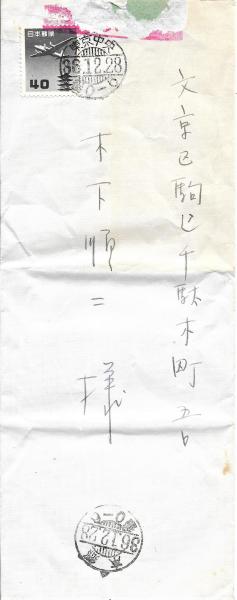 日本郵便
40
東京中央
36.12.28
0-6
文京区駒込千駄木町五〇
木下順二様
36.12.28
0-6